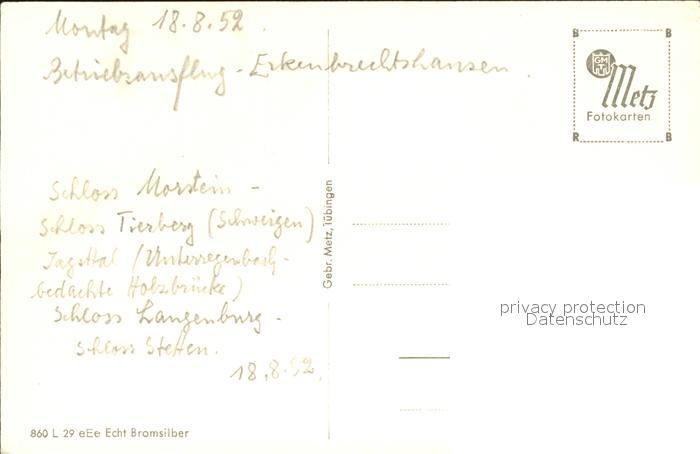 Montag 18.8.52.
Betriebsausflug - Erkenbrechtshausen.
Schloss Morstein -
Schloss Tierberg (Schweigen)
Jagsttal (Unterregenbach-
bedachte Holzbrücke)
Schloss Langenburg -
Schloss Stetten.
18.8.52.
860 L 29 eEe Echt Bromsilber
Gebr. Metz, Tübingen
B B
GM
Metz
Fotokarten
R B
privacy protection
Datenschutz